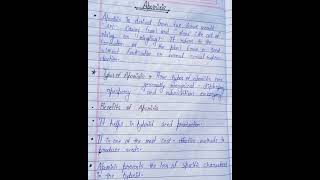 Apomixis
Apomixis is derived from two Greek words
"Apo" (away from) and "mixis" (the act of
mixing or mingling). It refers to the
of the plant from a seed
without fertilization or normal sexual reprod-
uction.
* Types of Apomixis → Four types of apomixis are
generally recognized - diplospory,
apospory and adventitious embryony.
Benefits of Apomixis
• It helps in hybrid seed production.
• It is one of the most cost-effective methods to
produce seeds.
• Apomixis prevents the loss of specific characters
in the hybrid.